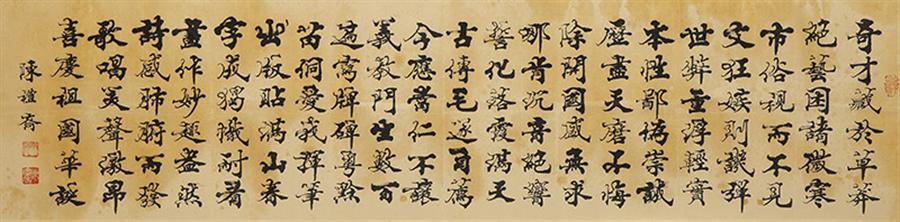 奇才藏於草莽
絕藝困諸微寒
市俗視而不見
文狂嫉則譏彈
世弊重浮輕實
本性鄙偽崇誠
歷盡天磨不悔
除開國盛無求
哪肯沉音絕響
誓化落霞滿天
古傳毛遂自薦
今應當仁不讓
義教門生數百
遍寫牌碑粵黔
苗侗愛我揮筆
出版貼滿山春
字成獨幟耐看
畫作妙趣盎然
詩感肺腑而發
歌唱美聲激昂
喜慶祖國華誕
陳